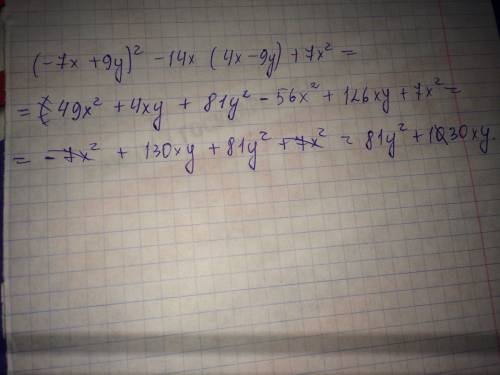 (-7x + 9y)² - 14x (4x - 9y) + 7x² =
= 49x² + 4xy + 81y² - 56x² + 126xy + 7x² =
= -7x² + 130xy + 81y² + 7x² = 81y² + 1030xy.